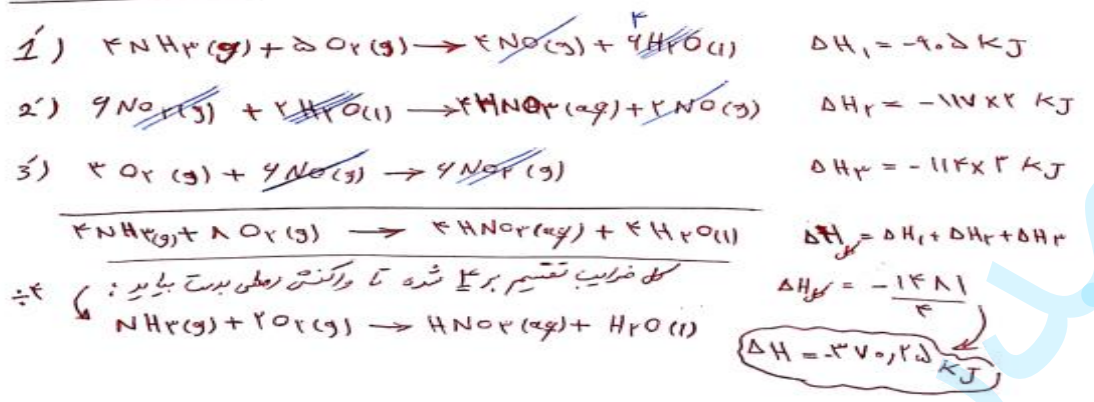 1́) ۴NH۳(g) + ۵O۲(g) → ۴NO(g) + ۶H۲O(l) ۴ ΔH۱ = -۹۰۵ KJ
2́) ۶NO۲(g) + ۲H۲O(l) → ۴HNO۳(aq) + ۲NO(g) ΔH۲ = -۱۱۷×۲ KJ
3́) ۳O۲(g) + ۶NO(g) → ۶NO۲(g) ΔH۳ = -۱۱۴×۳ KJ
۴NH۳(g) + ۸O۲(g) → ۴HNO۳(aq) + ۴H۲O(l) ΔHکل = ΔH۱ + ΔH۲ + ΔH۳
÷۴ کل ضرایب تقسیم بر ۴ شده تا واکنش اصلی بدست بیاید : ΔHکل = -۱۴۸۱/۴
NH۳(g) + ۲O۲(g) → HNO۳(aq) + H۲O(l)
ΔH = -۳۷۰,۲۵ KJ